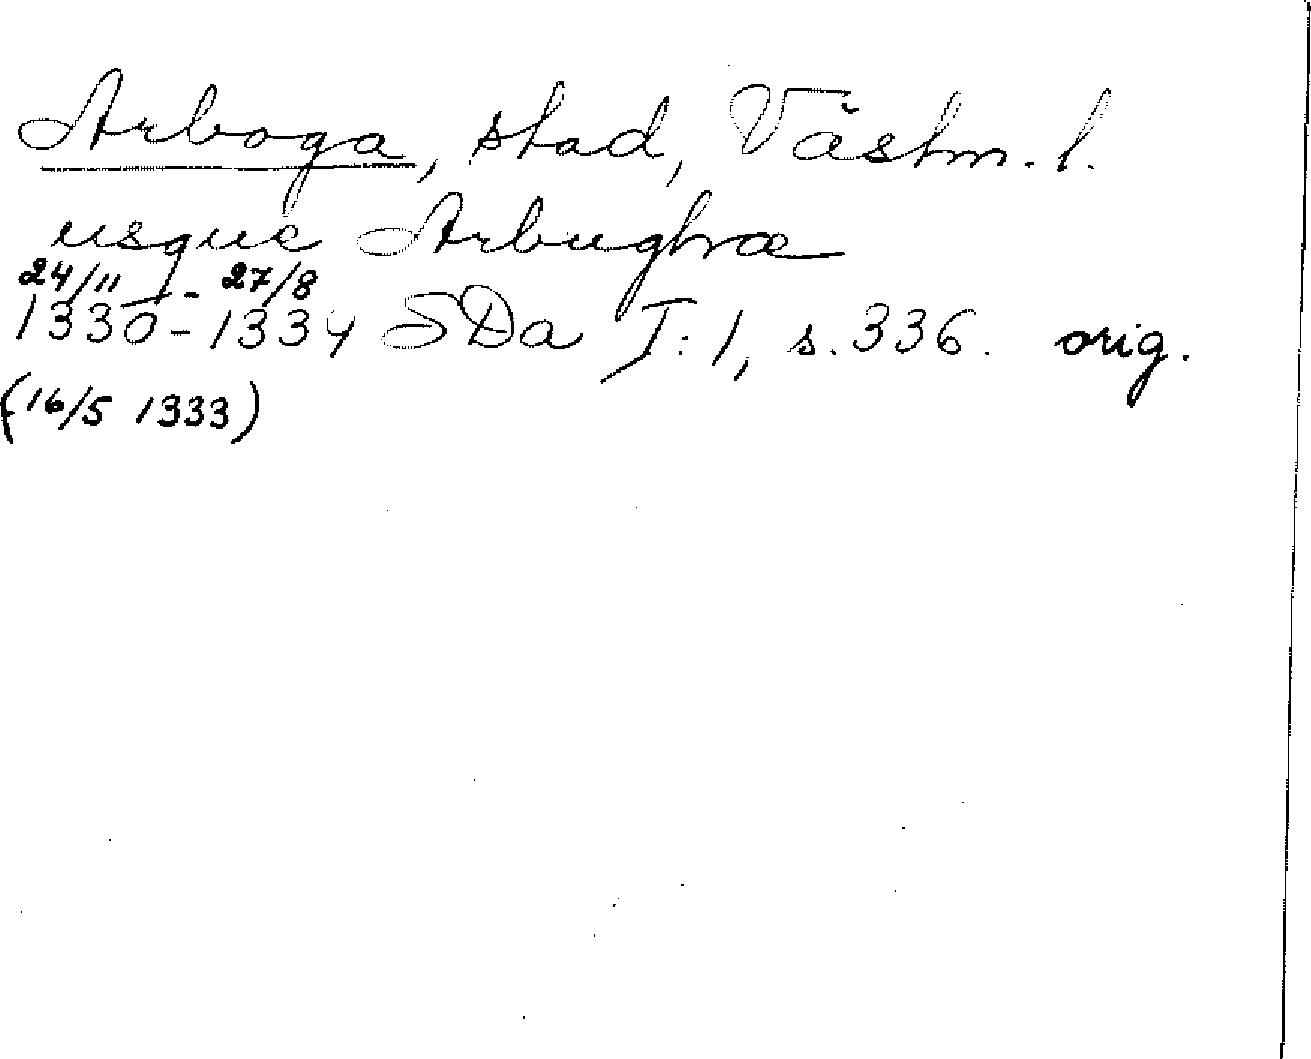 Arboga, stad, Västm. l.
usque Arbughæ
24/11 - 27/8
1330 - 1334 SDa I:1, s. 336. orig.
(16/5 1333)